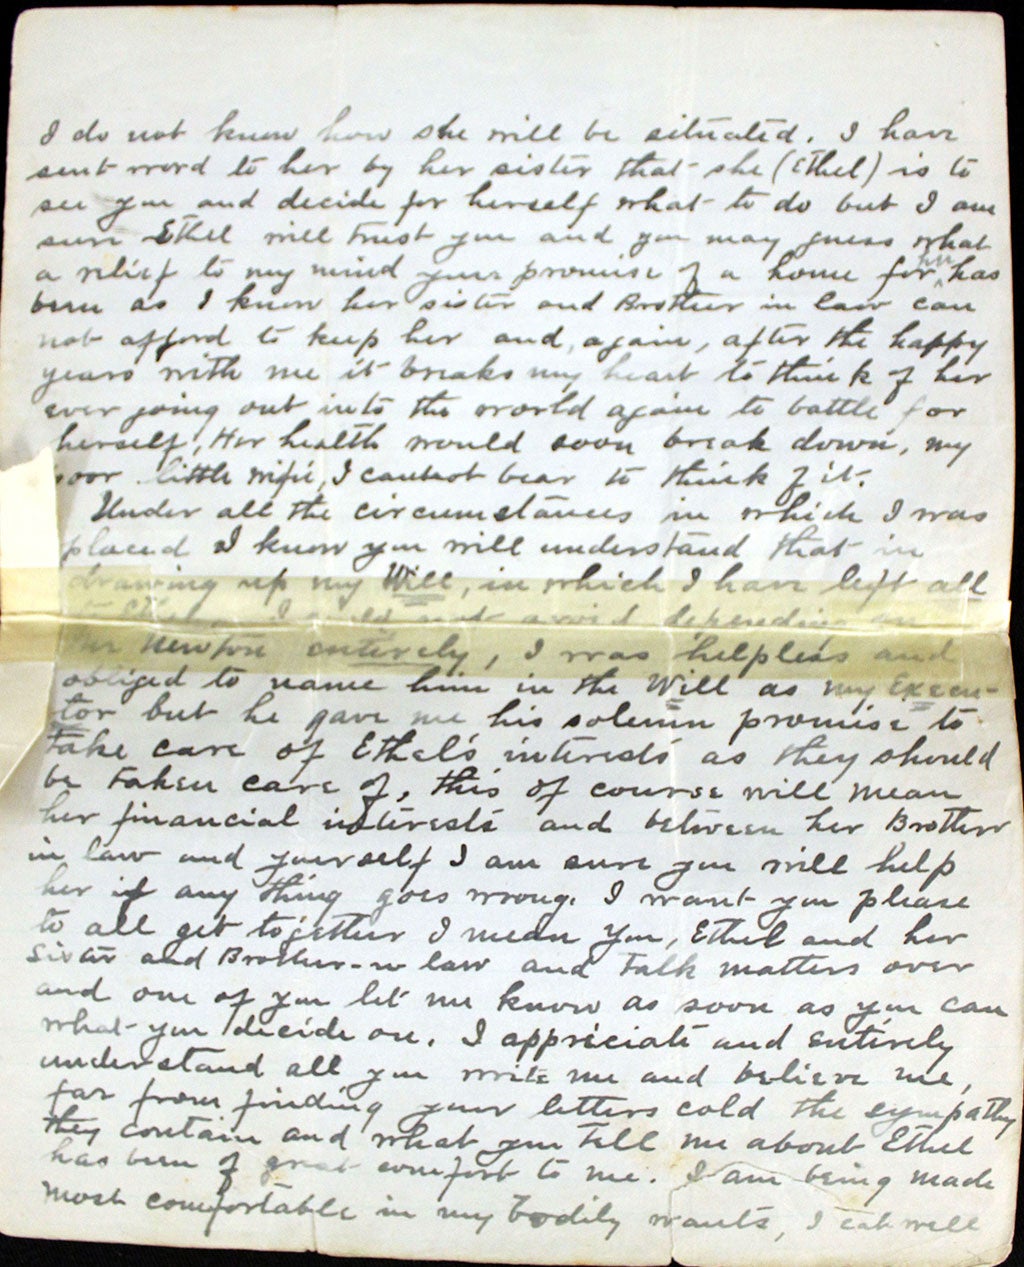 I do not know how she will be situated. I have
sent word to her by her sister that she (Ethel) is to
see you and decide for herself what to do but I am
sure Ethel will trust you and you may guess what
a relief to my mind your promise of a home for her has
been as I know her sister and Brother in law can
not afford to keep her and, again, after the happy
years with me it breaks my heart to think of her
ever going out into the world again to battle for
herself, Her health would soon break down, my
poor little wifie, I cannot bear to think of it.
Under all the circumstances in which I was
placed I know you will understand that in
drawing up my Will, in which I have left all
to I could not avoid depending on
Mr Newton entirely, I was helpless and
obliged to name him in the Will as my Execu-
tor but he gave me his solemn promise to
take care of Ethel's interests as they should
be taken care of, this of course will mean
her financial interests and between her Brother
in law and yourself I am sure you will help
her if any thing goes wrong. I want you please
to all get together I mean You, Ethel and her
Sister and Brother-in law and talk matters over
and one of you let me know as soon as you can
what you decide on. I appreciate and entirely
understand all you write me and believe me,
far from finding your letters cold the sympathy
they contain and what you tell me about Ethel
has been of great comfort to me. I am being made
most comfortable in my bodily wants, I eat well